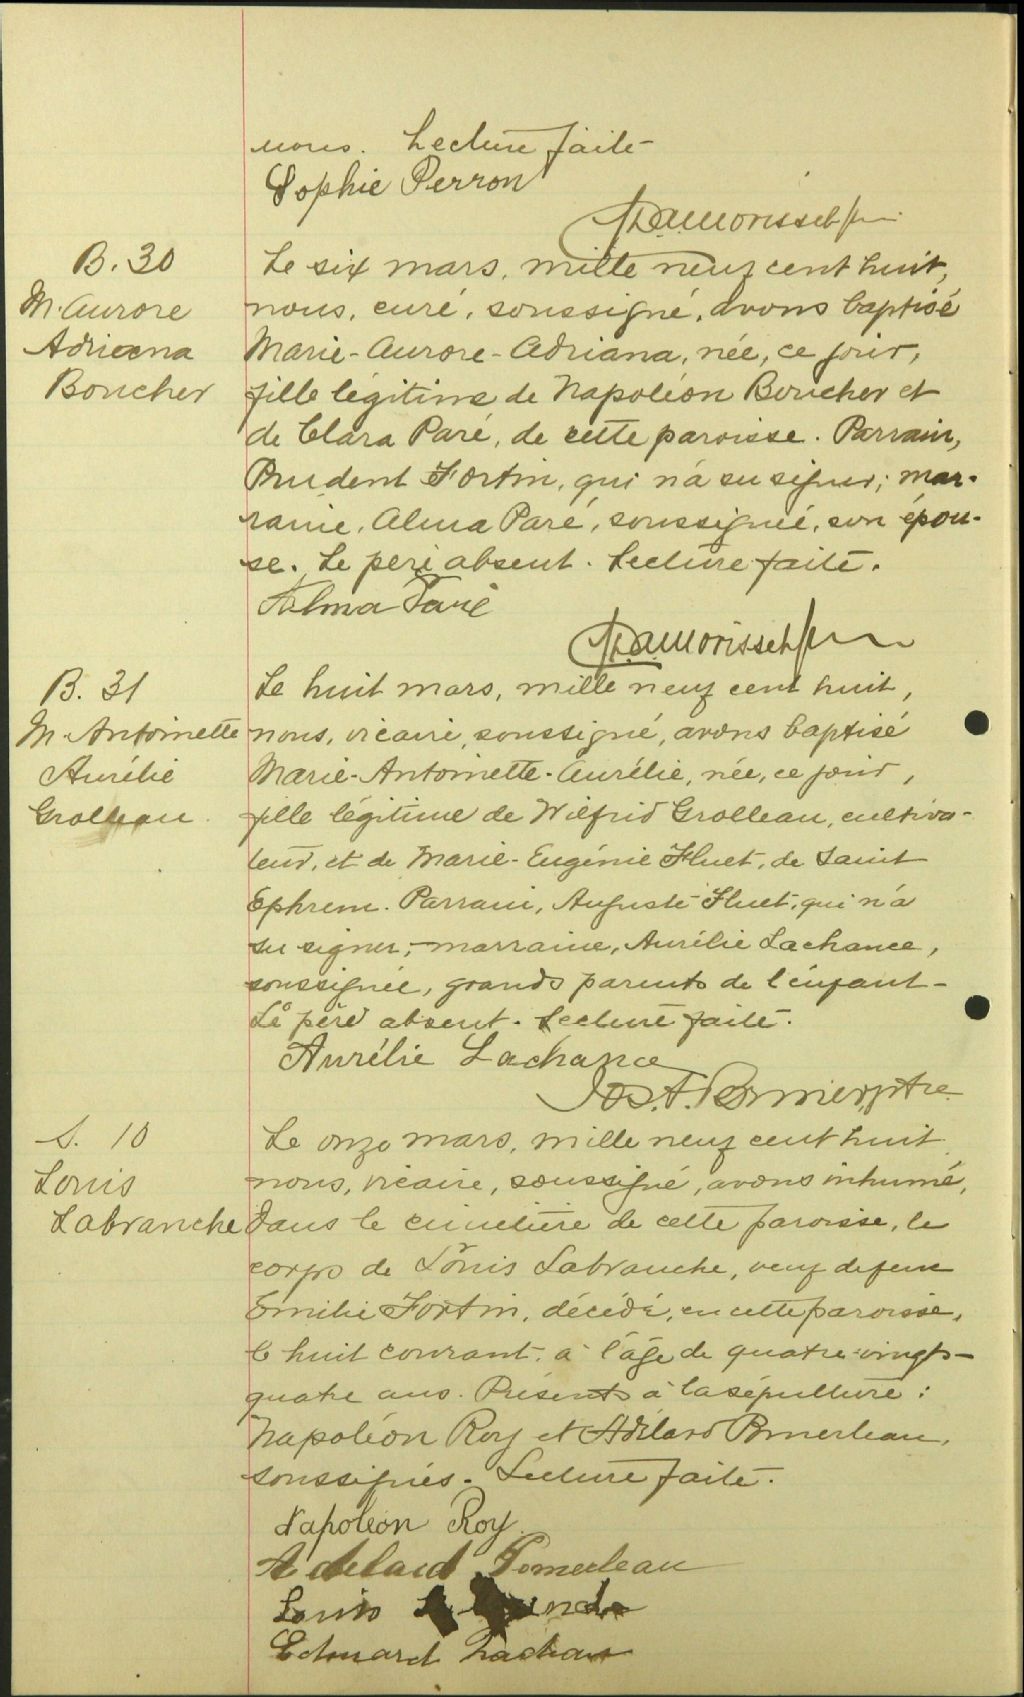 nous. Lecture faite
Sophie Perron
B. 30
M. Aurore
Adrienna
Boucher
Le six mars, mille neuf cent huit,
nous, curé, soussigné, avons baptisé
Marie-Aurore-Adriana, née, ce jour,
fille légitime de Napoléon Boucher et
de Clara Paré, de cette paroisse. Parrain,
Prudent Fortin, qui n'a su signer; mar-
raine, Alma Paré, soussignée, son épou-
se. Le père absent. Lecture faite.
Alma Paré
B. 31
M. Antoinette
Aurélie
Grolleau
Le huit mars, mille neuf cent huit,
nous, vicaire, soussigné, avons baptisé
Marie-Antoinette-Aurélie, née, ce jour,
fille légitime de Wilfrid Grolleau, cultiva-
teur, et de Marie-Eugénie Fluet, de Saint
Ephrem. Parrain, Auguste Fluet, qui n'a
su signer; marraine, Aurélie Lachance,
soussignée, grands parents de l'enfant-
Le père absent. Lecture faite.
Aurélie Lachance
Jos. A. Bernier, ptre
S. 10
Louis
Labranche
Le onze mars, mille neuf cent huit,
nous, vicaire, soussigné, avons inhumé,
dans le cimetière de cette paroisse, le
corps de Louis Labranche, veuf de feue
Emilie Fortin, décédé, en cette paroisse,
le huit courant, à l'âge de quatre-vingt-
quatre ans. Présents à la sépulture:
Napoléon Roy et Adélard Pomerleau,
soussignés. Lecture faite.
Napoléon Roy
Adelard Pomerleau
Louis
Edouard